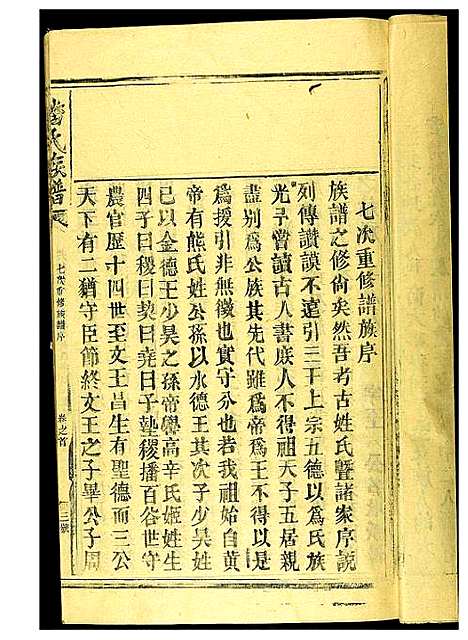 七次重修譜族序
族譜之修尚矣然吾考古姓氏暨諸家序說
列傳讚謨不遠引三干上宗五德以爲氏族
光予嘗讀古人書庶人不得祖天子五居親
盡别爲公族其先代雖爲帝爲王不得以是
爲援引非無徵也實守分也若我祖始自黄
帝有熊氏姓公孫以水德王其次子少昊姓
已以金德王少昊之孫帝嚳高辛氏姬姓生
四子曰稷曰契曰堯曰予摯稷播百谷世守
農官歷十四世至文王昌生有聖德而三公
天下有二猶守臣節終文王之子畢公子周
氏族譜
七次重修族譜序
卷之首
三號